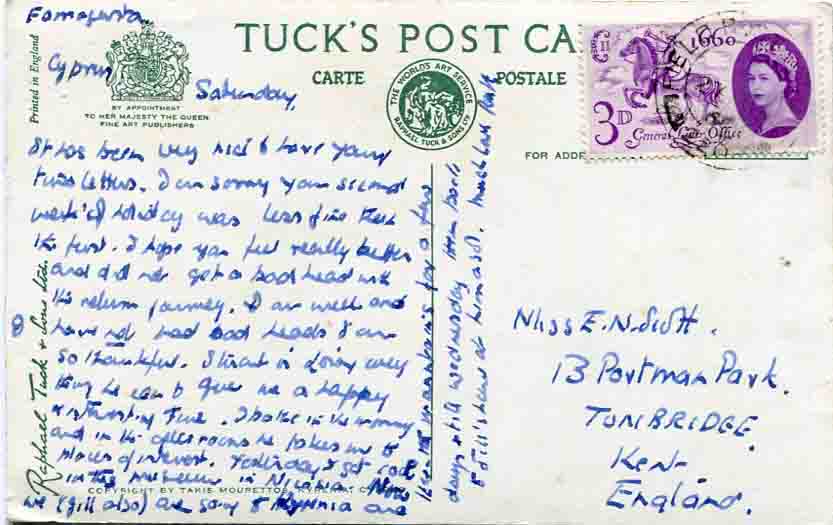 Famagusta
Cyprus
Saturday,
Printed in England
BY APPOINTMENT
TO HER MAJESTY THE QUEEN
FINE ART PUBLISHERS
TUCK'S POST CA
CARTE
POSTALE
THE WORLD'S ART SERVICE
RAPHAEL TUCK & SONS LTD
FOR ADD
1660
3D
General Letter Office
It has been very nice to have your
two letters. I am sorry your second
week of holiday was less fine than
the first. I hope you feel really better
and did not get a bad head with
the return journey. I am well and
have not had bad heads I am
so thankful. Stuart is doing every
thing he can to give me a happy
& interesting time. I bathe in the morning
and in the afternoons he takes me to
places of interest. Yesterday I got cool
in the museum in Nicosia. Now
we (Jill also) are going to Kyrenia and
the mountains for a few
days till Wednesday then back
to Jill's house at Limassol. Much love Ruth
Raphael Tuck & Sons Ltd.
COPYRIGHT BY TAKIS MOURETTOS, KYRENIA
Miss E. N. Scott.
13 Portman Park.
TONBRIDGE
Kent
England.